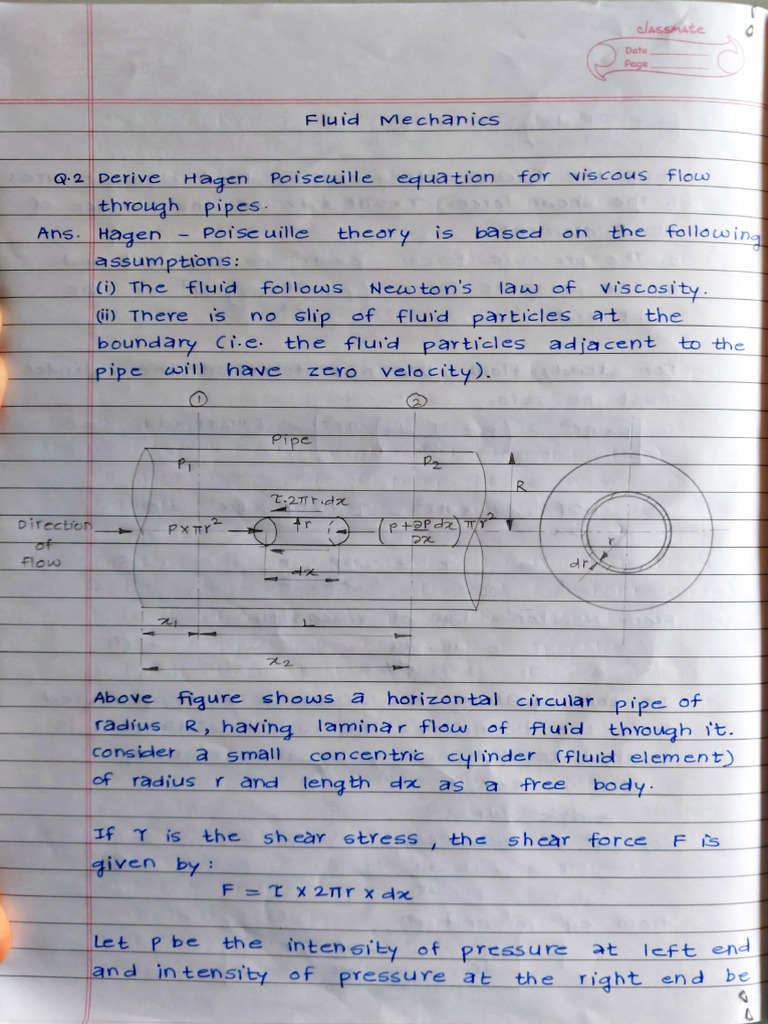 classmate
Date
Page
Fluid Mechanics
Q.2 Derive Hagen Poiseuille equation for viscous flow
through pipes.
Ans. Hagen - Poiseuille theory is based on the following
assumptions:
(i) The fluid follows Newton's law of viscosity.
(ii) There is no slip of fluid particles at the
boundary (i.e. the fluid particles adjacent to the
pipe will have zero velocity).
① ②
Pipe
P₁ P₂
R
τ.2πr.dx
Direction of flow
P×πr² r (P+∂P/∂x dx) πr²
r
dr
dx
x₁ L
x₂
Above figure shows a horizontal circular pipe of
radius R, having laminar flow of fluid through it.
consider a small concentric cylinder (fluid element)
of radius r and length dx as a free body.
If τ is the shear stress, the shear force F is
given by:
F = τ × 2πr × dx
Let P be the intensity of pressure at left end
and intensity of pressure at the right end be